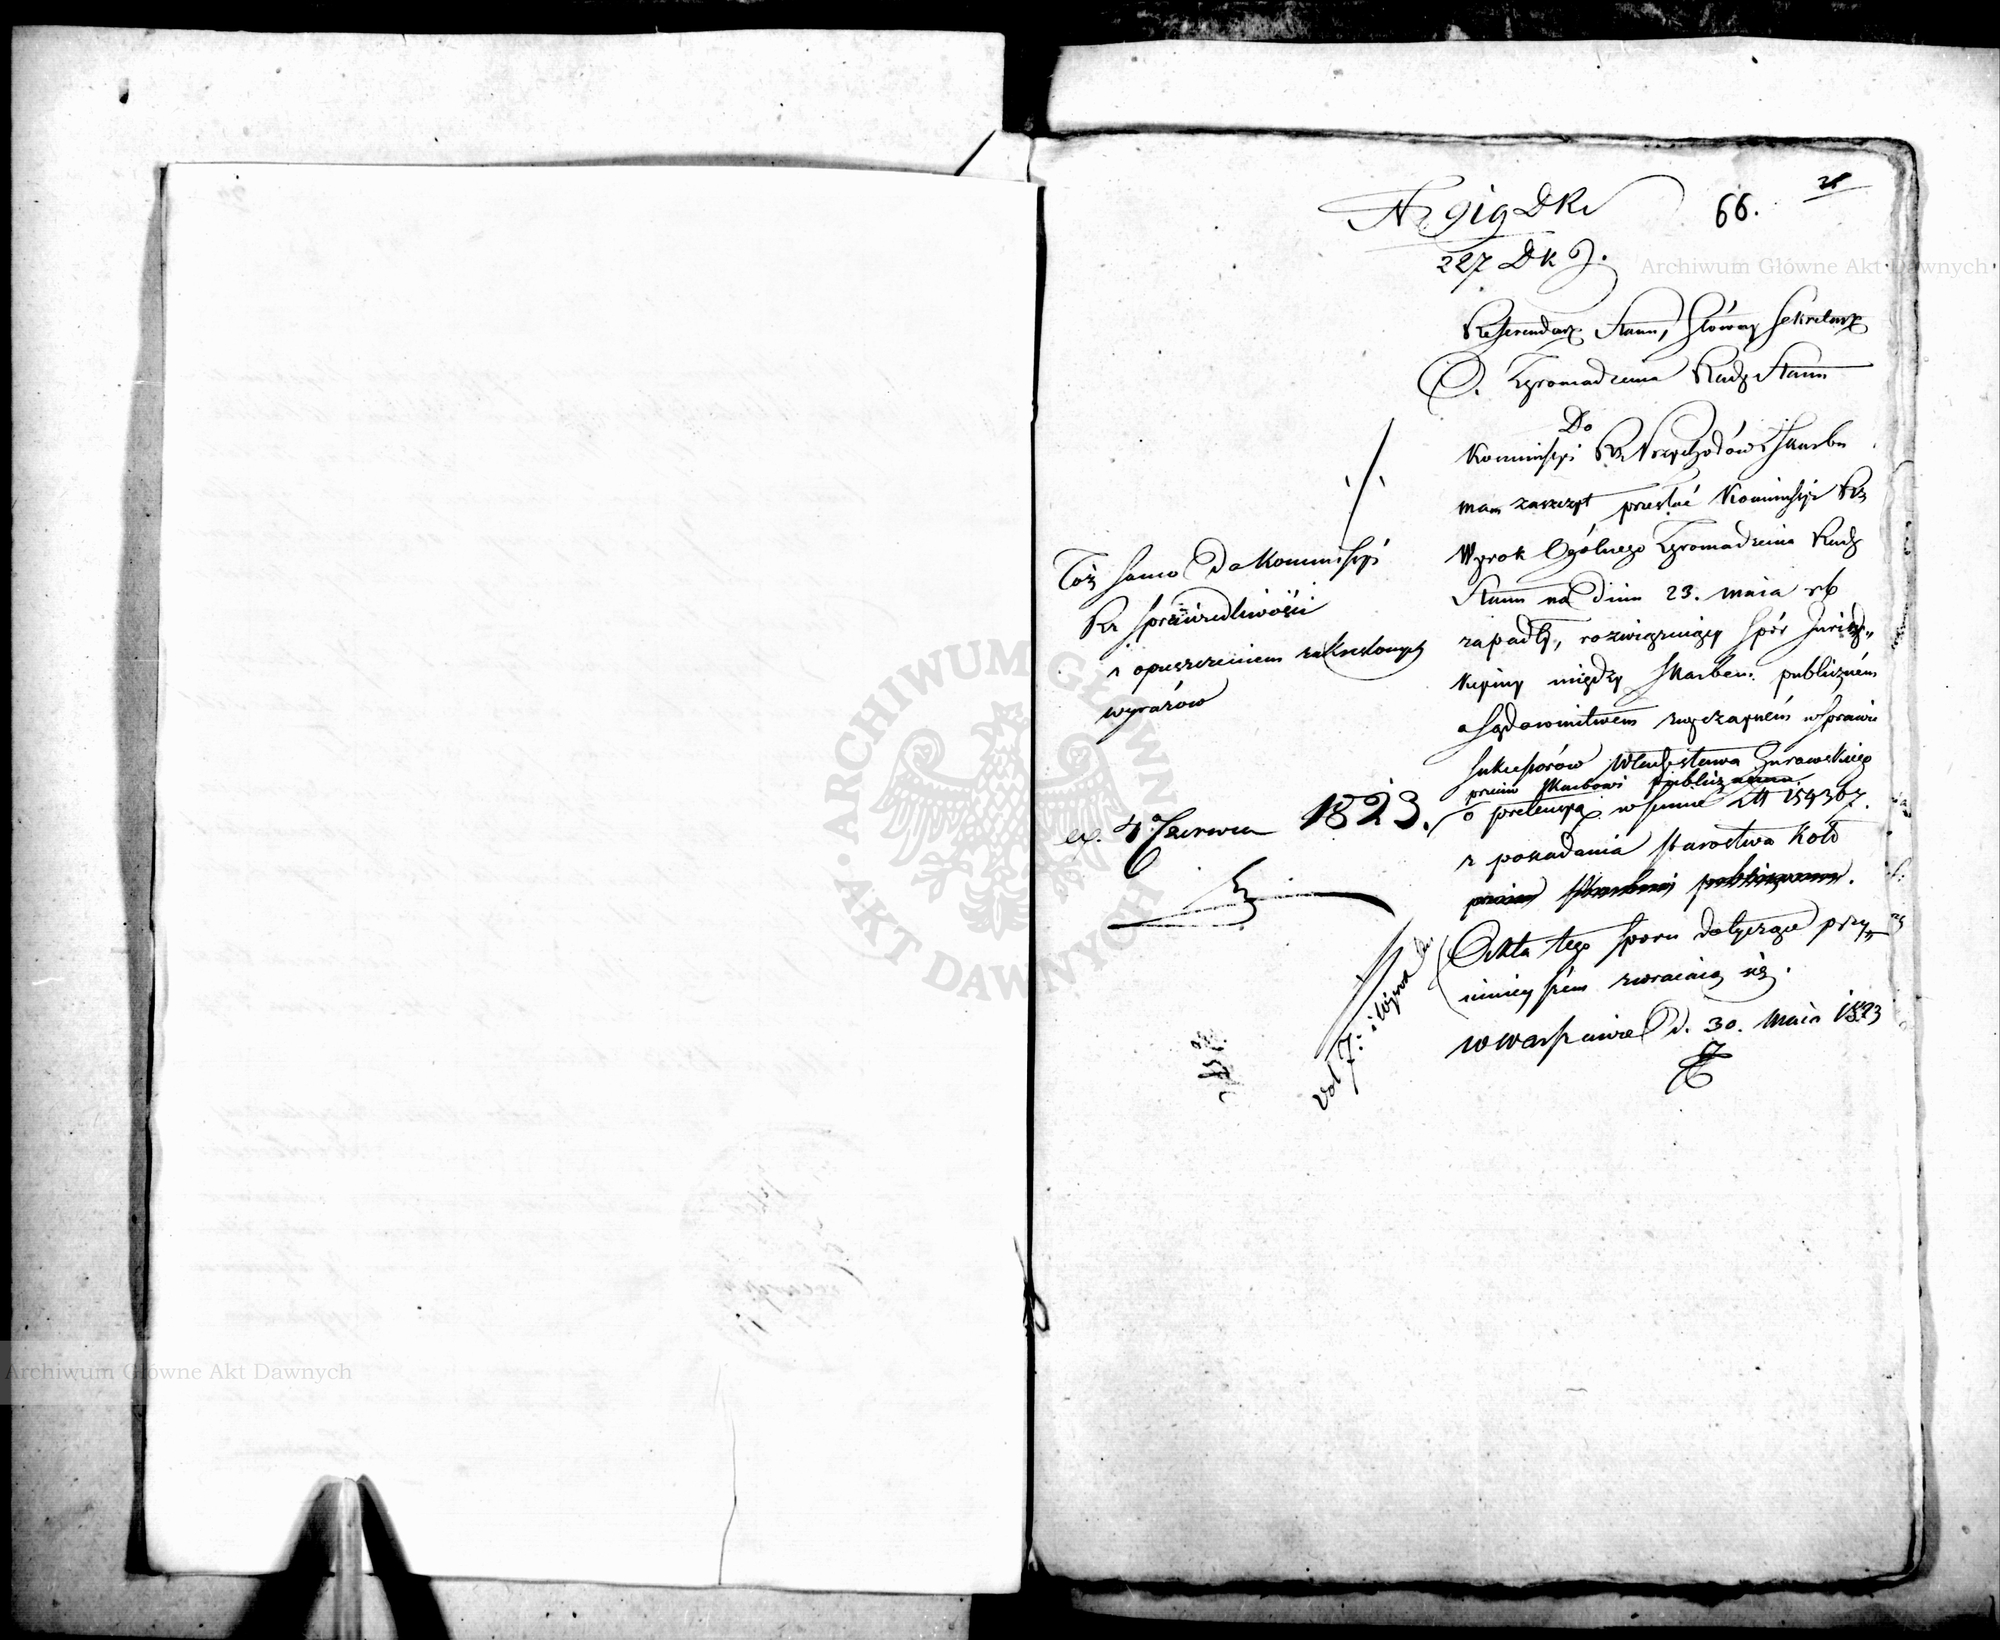 Nr 919 DK
66.
227 DKJ.
Referendarz Stanu, Główny Sekretarz
O. Zgromadzenia Rady Stanu
Do
Kommissyi Rz Przychodów i Skarbu
mam zaszczyt przesłać Kommissyi Rz
Wyrok Ogólnego Zgromadzenia Rady
Stanu na dniu 23. maia rb
zapadły, rozwiązuiący spór Juryzd„
kcyiny między Skarbem publicznem
a Sądownictwem zwyczaynem w sprawie
sukcessorów Władysława Żurawskiego
przeciw Skarbowi publicznemu
o pretensyą w summie Zł 154307.
z posiadania Starostwa Koło
przeciw Skarbowi publicznemu.
Akta tego sporu dotyczące przy
ninieyszém zwracaią się.
w Warszawie d. 30. Maia 1823
Toż samo do Kommissyi
Rz Sprawiedliwości
z opuszczeniem zakreskowanych
wyrazów
ex. 4 Czerwca 1823.
Vol 7: i Wyrok
Archiwum Główne Akt Dawnych
Archiwum Główne Akt Dawnych
ARCHIWUM GŁÓWNE
AKT DAWNYCH